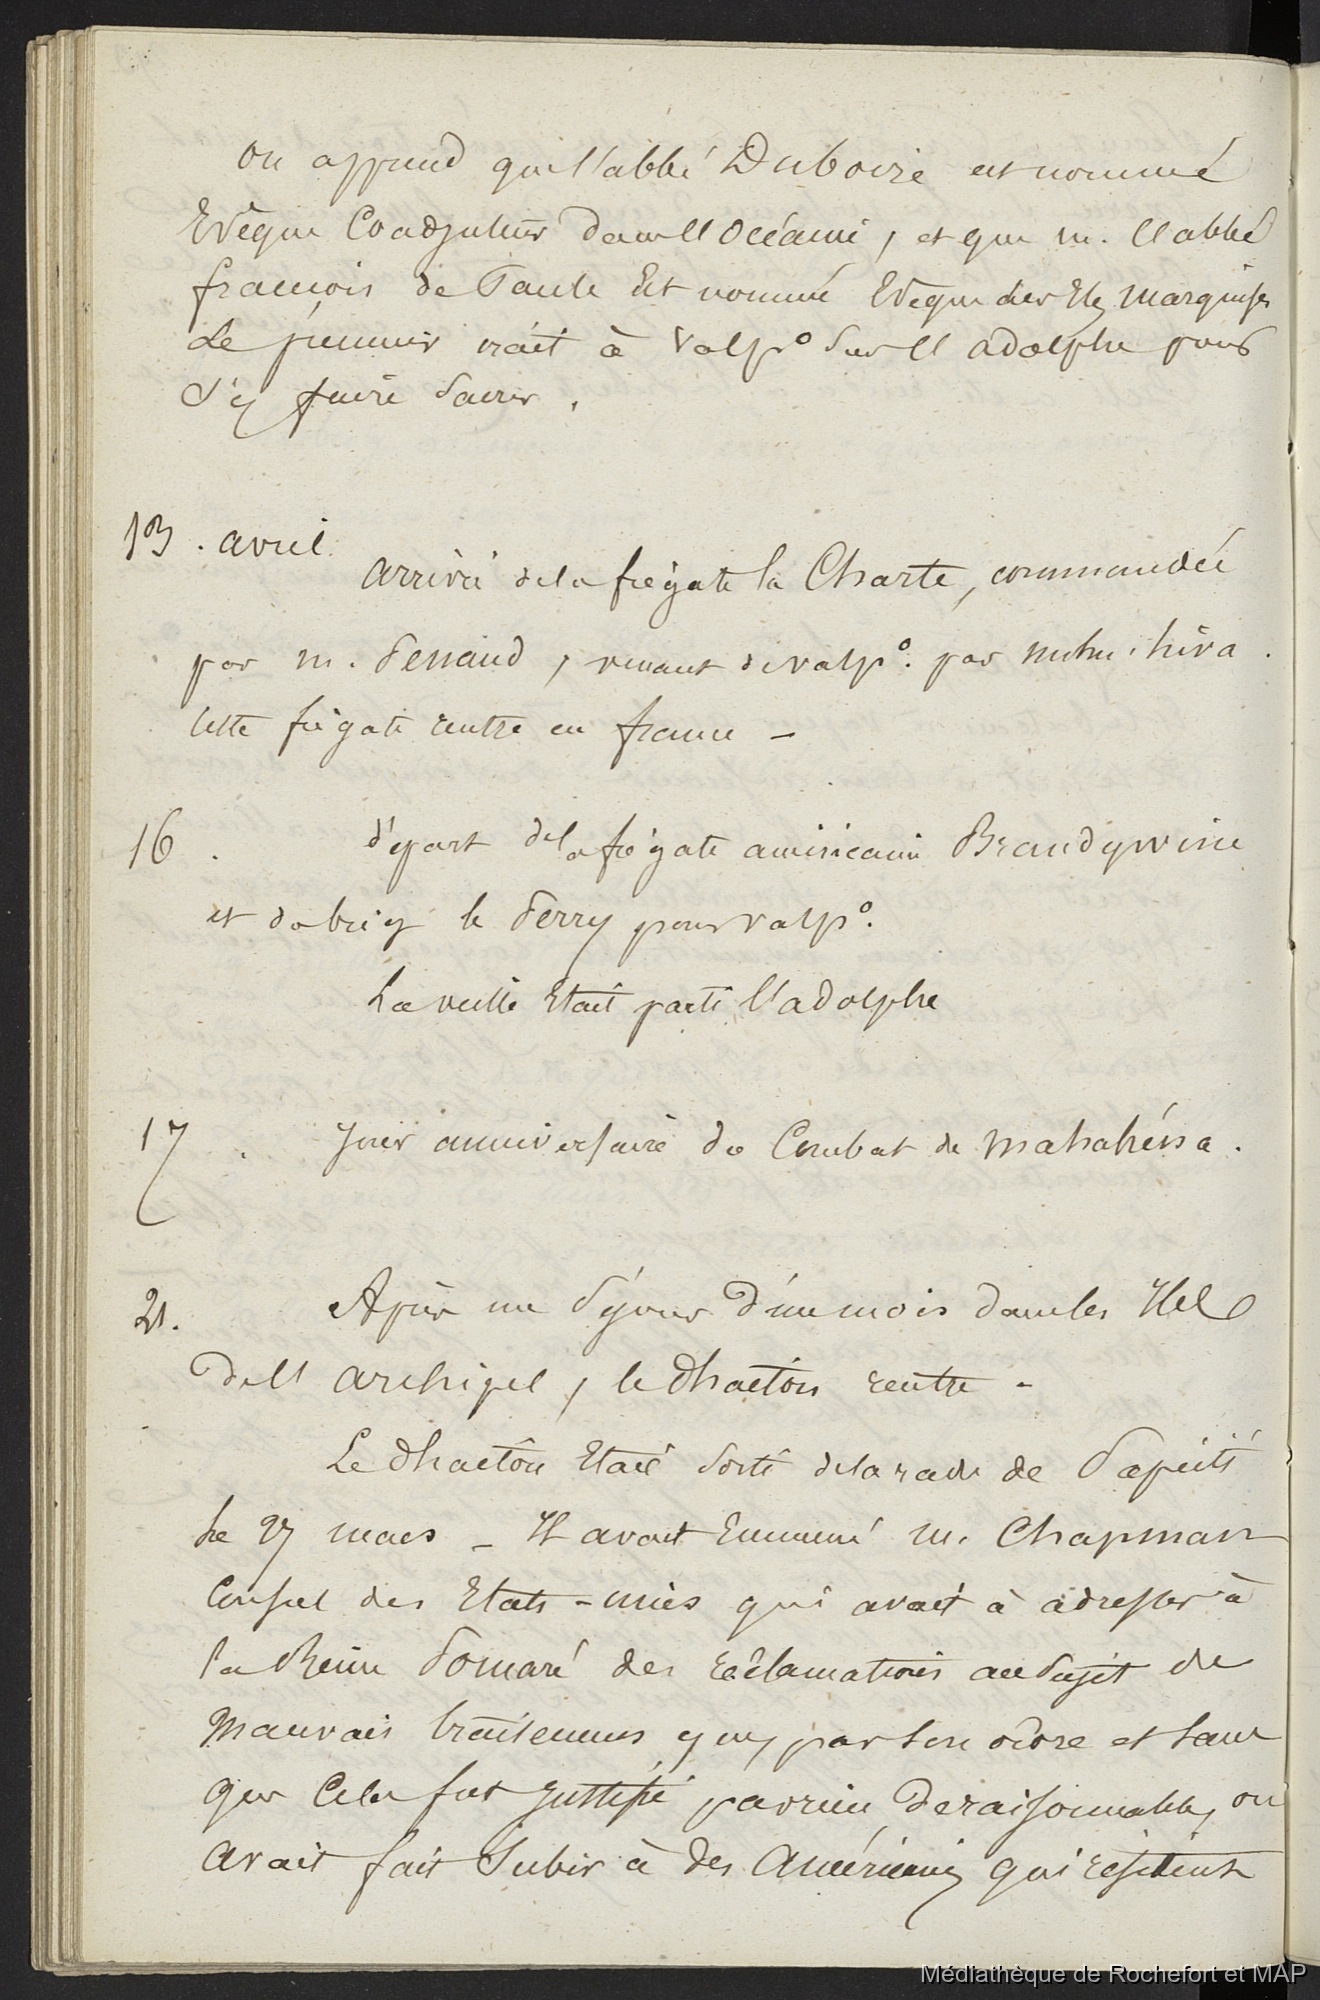 On apprend que l'abbé Duboize est nommé
Evêque Coadjuteur dans l'Océanie, et que m. l'abbé
françois de Paule Est nommé Evêque des Iles Marquises
Le premier irait à Valpo. sur l'adolphe pour
s'y faire sacrer.
13. avril
arrivée de la frégate la Charte, commandée
par m. Penaud, venant de valpo. par nuku-hiva.
cette frégate rentre en france -
16.
départ de la frégate américaine Brandywine
et du brig le Perry pour valpo.
La veille était parti l'adolphe
17.
Jour anniversaire du Combat de Mahahéna.
21.
Après un séjour d'un mois dans les Iles
de l'archipel, le Phaéton rentre -
Le Phaéton était sorti de la rade de Papeïti
le 27 mars - Il avait Emmené m. Chapman
Consul des Etats-unis qui avait à adresser à
la Reine Pomaré des réclamations au sujet de
mauvais traitemens que, par son ordre et sans
que Cela fut justifié par rien de raisonnable, on
avait fait subir à des Américains qui résidaient
Médiathèque de Rochefort et MAP